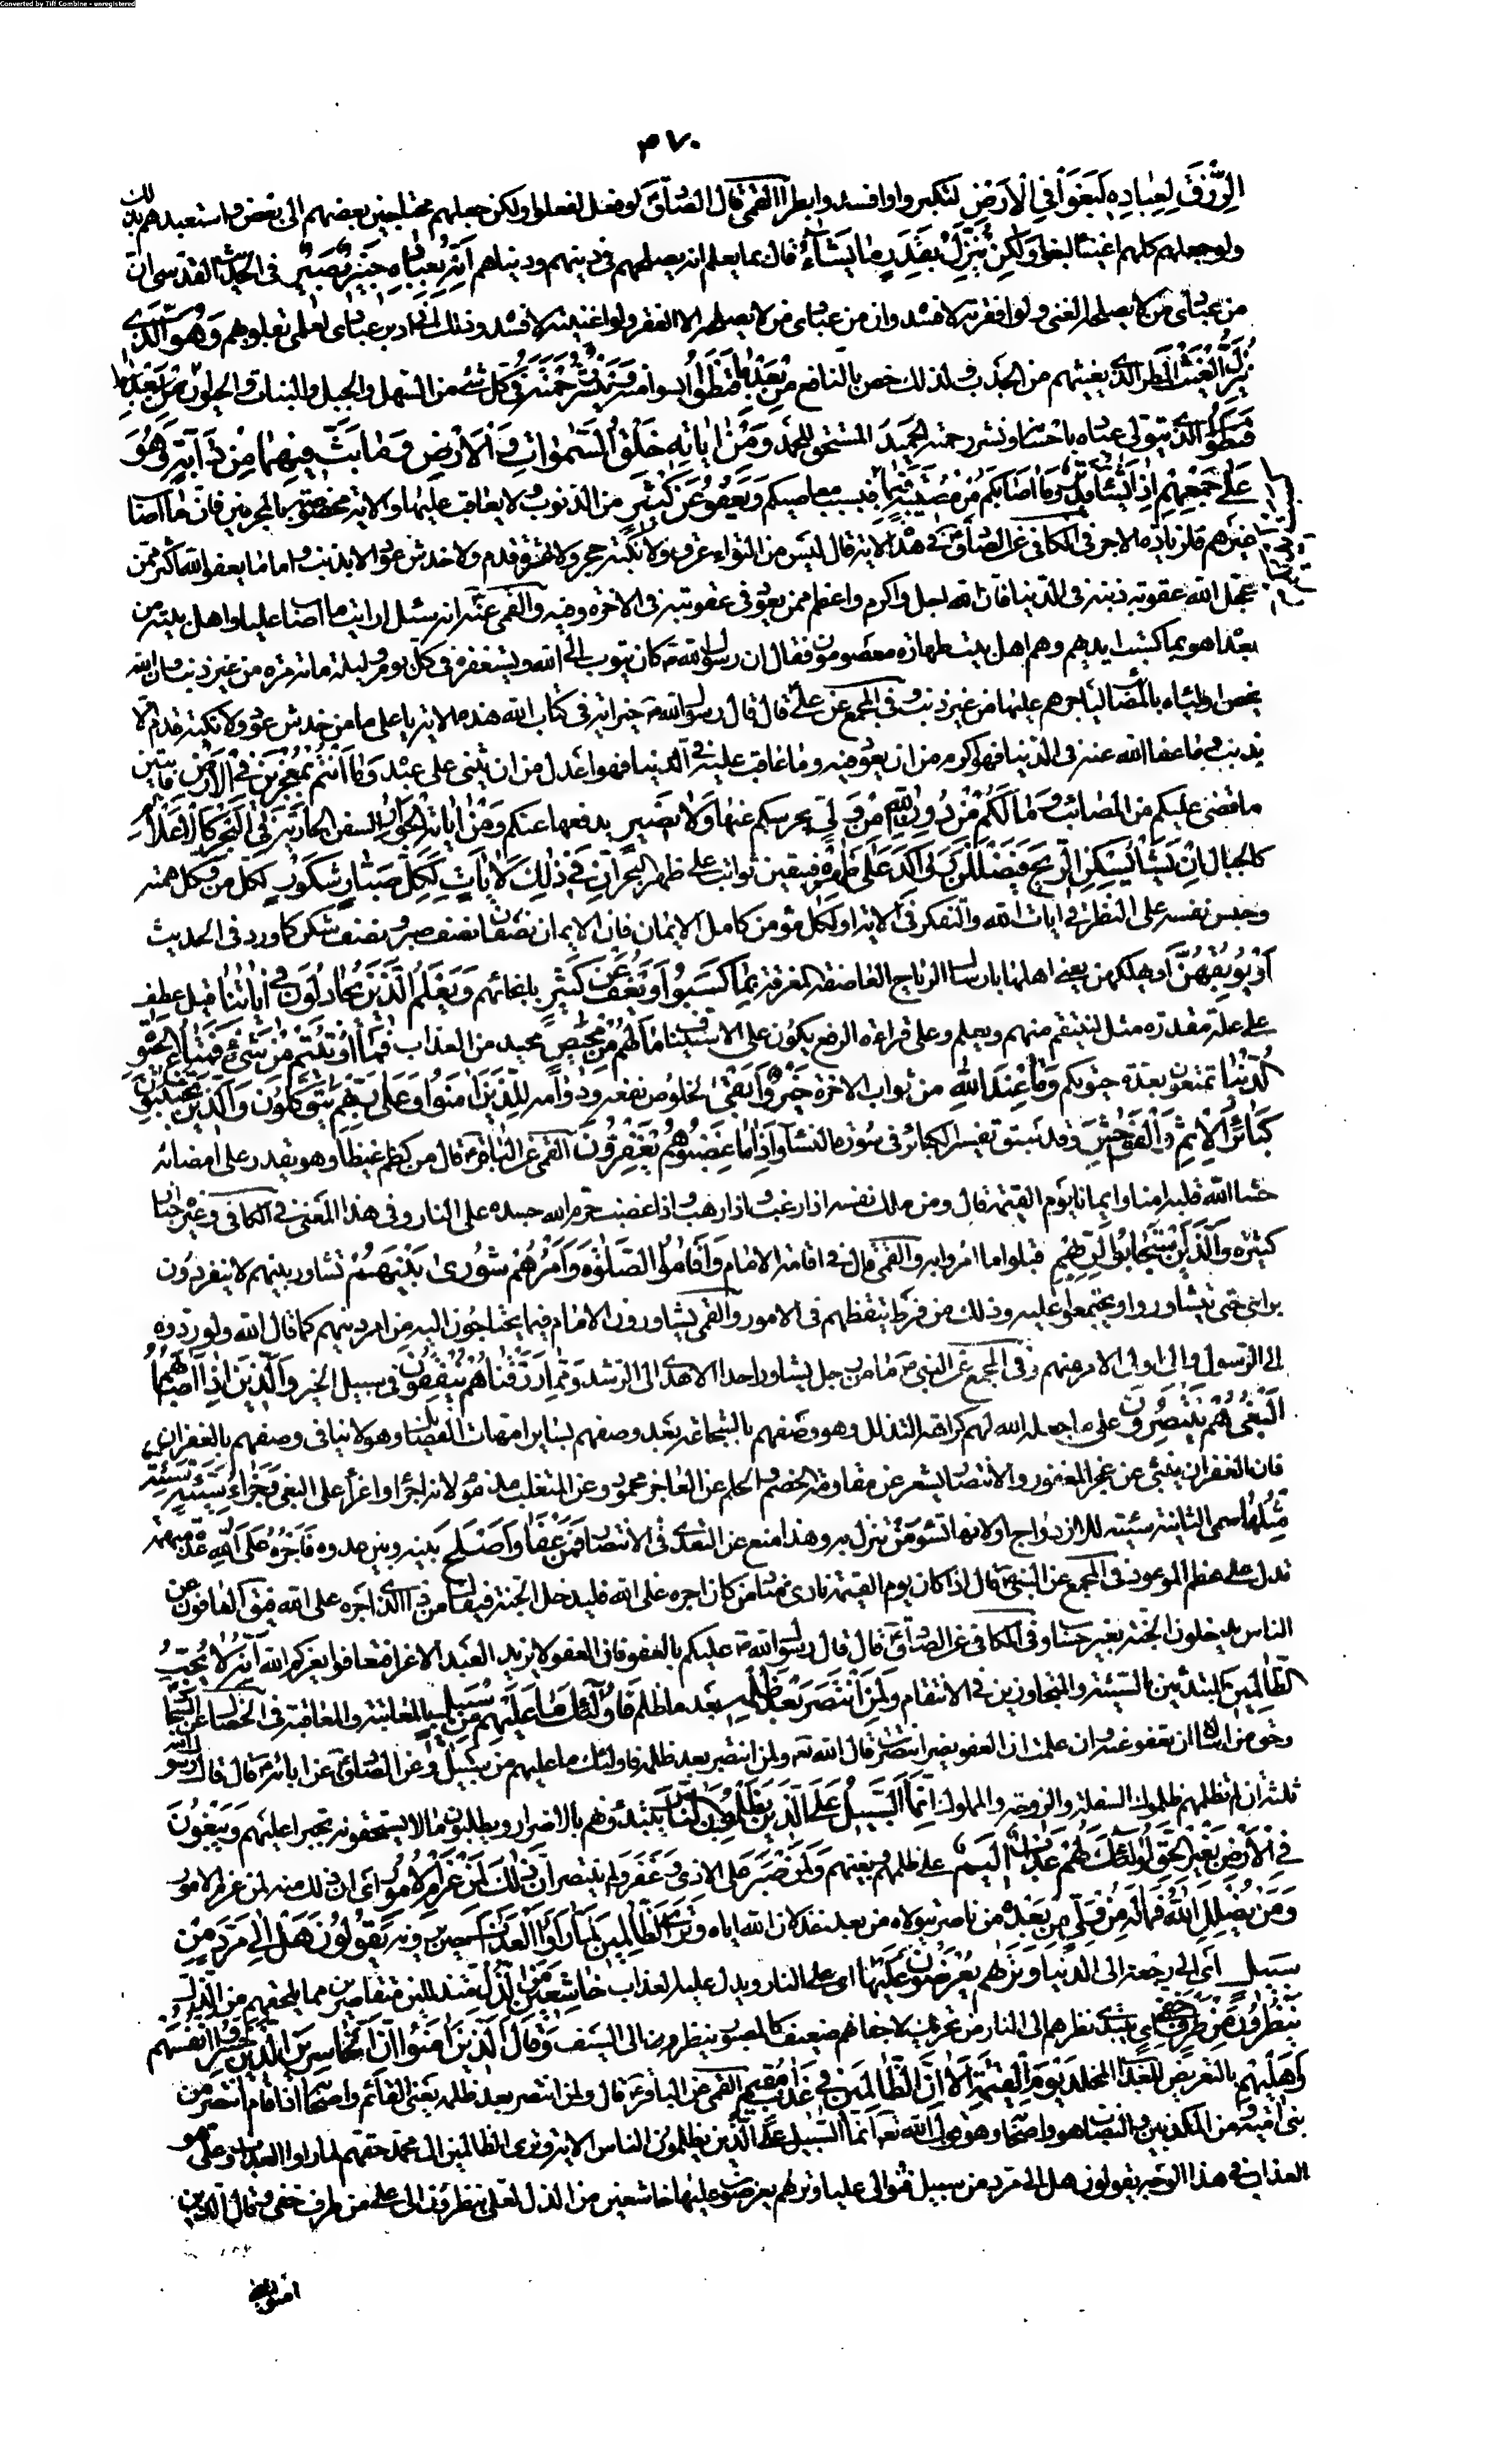 Converted by Tiff Combine - unregistered
٣٧٠
الرِّزْقَ لِعِبادِهِ لَبَغَوْا فِي الْأَرْضِ لتكبروا وافسدوا بطرا القمي قال الصادق لو فعل لفعلوا ولكن جعلهم محتاجين بعضهم الى بعض واستعبدهم بذلك
ولو جعلهم كلهم اغنياء لبغوا وَلكِنْ يُنَزِّلُ بِقَدَرٍ ما يَشاءُ قال بما يعلم انه يصلحهم في دينهم ودنياهم اِنَّهُ بِعِبادِهِ خَبِيرٌ بَصِيرٌ في الحديث القدسي ان
من عبادي من لا يصلحه الا الغنى ولو افقرته لافسده وان من عبادي من لا يصلحه الا الفقر ولو اغنيته لافسده وذلك اني ادبر عبادي لعلمي بقلوبهم وَهُوَ الَّذِي
يُنَزِّلُ الْغَيْثَ المطر الذي يغيثهم من الجدب ولذلك خص بالنافع مِنْ بَعْدِ ما قَنَطُوا ايسوا منه وَيَنْشُرُ رَحْمَتَهُ في كل شيء من السهل والجبل والنبات والحيوان من بعد ما
قنطوا الذي يتولى عباده باحسانه ونشر رحمته الْحَمِيدُ المستحق للحمد وَمِنْ آياتِهِ خَلْقُ السَّمواتِ وَالْأَرْضِ وَما بَثَّ فِيهِما مِنْ دابَّةٍ وَهُوَ
عَلى جَمْعِهِمْ اِذا يَشاءُ قَدِيرٌ وَما اَصابَكُمْ مِنْ مُصِيبَةٍ فَبِما فبسبب معاصيكم وَيَعْفُو عَنْ كَثِيرٍ من الذنوب ولا يعاقب عليها والاية مخصوصة بالمجرمين فان ما اصاب
غيرهم فلزيادة الاجر في الكافي عن الصادق في هذه الاية قال ليس من التواء عرق ولا نكبة حجر ولا عثرة قدم ولا خدش عود الا بذنب واما ما يعفو الله اكثر فمن
عجل الله عقوبة ذنبه في الدنيا فان الله اجل واكرم واعظم من يعود في عقوبته في الاخرة وفيه والقمي عنه انه سئل ارايت ما اصاب عليا واهل بيته من
بعده اهو بما كسبت ايديهم وهم اهل بيت طهارة معصومون فقال ان رسول الله ص كان يتوب الى الله ويستغفره في كل يوم وليلة مائة مرة من غير ذنب ان الله
يخص اولياءه بالمصائب لياجرهم عليها من غير ذنب وفي المجمع عن علي قال قال رسول الله ص خير اية في كتاب الله هذه الاية يا علي ما من خدش عود ولا نكبة قدم الا
بذنب وما عفا الله عنه في الدنيا فهو اكرم من ان يعود فيه وما عاقب عليه في الدنيا فهو اعدل من ان يثني على عبده وَما اَنْتُمْ بِمُعْجِزِينَ فِي الْأَرْضِ فائتين
ما قضي عليكم من المصائب وَما لَكُمْ مِنْ دُونِ اللَّهِ مِنْ وَلِيٍّ يحرسكم عنها وَلا نَصِيرٍ يدفعها عنكم وَمِنْ آياتِهِ الْجَوارِ السفن الجارية فِي الْبَحْرِ كَالْأَعْلامِ
كالجبال اِنْ يَشَأْ يُسْكِنِ الرِّيحَ فَيَظْلَلْنَ رَواكِدَ عَلى ظَهْرِهِ فيبقين ثوابت على ظهر البحر اِنَّ فِي ذلِكَ لَآياتٍ لِكُلِّ صَبَّارٍ شَكُورٍ لكل من وكل همته
وحبس نفسه على النظر في ايات الله والتفكر في الائه او لكل مؤمن كامل الايمان فان الايمان نصفان نصف صبر ونصف شكر كما ورد في الحديث
اَوْ يُوبِقْهُنَّ او يهلكهن يعني اهلها بارسال الرياح العاصفة المغرقة بِما كَسَبُوا او يَعْفُ عَنْ كَثِيرٍ بانجائهم وَيَعْلَمَ الَّذِينَ يُجادِلُونَ فِي آياتِنا قيل عطف
على علة مقدرة مثل لينتقم منهم ويعلم وعلى قراءة الرفع يكون على الاستيناف ما لَهُمْ مِنْ مَحِيصٍ محيد من العذاب فَما اُوتِيتُمْ مِنْ شَيْءٍ فَمَتاعُ الْحَيوةِ
الدُّنْيا تمتعون بعدة حيوتكم وَما عِنْدَ اللَّهِ من ثواب الاخرة خَيْرٌ وَاَبْقى لخلوص نفعه ودوامه لِلَّذِينَ آمَنُوا وَعَلى رَبِّهِمْ يَتَوَكَّلُونَ وَالَّذِينَ يَجْتَنِبُونَ
كَبائِرَ الْاِثْمِ وَالْفَواحِشَ وقد سبق تفسير الكبائر في سورة النساء وَاِذا ما غَضِبُوا هُمْ يَغْفِرُونَ القمي عن الباقر ع قال من كظم غيظا وهو يقدر على امضائه
حشا الله قلبه امنا وايمانا يوم القيمة قال ومن ملك نفسه اذا رغب واذا رهب واذا غضب حرم الله جسده على النار وفي هذا المعنى في الكافي وغيره اخبار
كثيرة وَالَّذِينَ اسْتَجابُوا لِرَبِّهِمْ قبلوا ما امروا به والقمي قال في اقامة الامام وَاَقامُوا الصَّلوةَ وَاَمْرُهُمْ شُورى بَيْنَهُمْ تشاور بينهم لا ينفردون
براي حتى يتشاوروا ويجتمعوا عليه وذلك من فرط تيقظهم في الامور والقمي يشاورون الامام فيما يحتاجون اليه من امر دينهم كما قال الله ولو ردوه
الى الرسول والى اولي الامر منهم وفي المجمع عن النبي ص ما من رجل يشاور احدا الا هدي الى الرشد وَمِمَّا رَزَقْناهُمْ يُنْفِقُونَ في سبيل الخير وَالَّذِينَ اِذا اَصابَهُمُ
الْبَغْيُ هُمْ يَنْتَصِرُونَ على ما جعله الله لهم كراهة التذلل وهو وصفهم بالشجاعة بعد وصفهم بسائر امهات الفضائل وهو لا ينافي وصفهم بالغفران
فان الغفران ينبئ عن عجز المغفور والانتصار يشعر عن مقاومة الخصم والحلم عن العاجز محمود وعن المتغلب مذموم لانه اجراء واغراء على البغي وَجَزاءُ سَيِّئَةٍ سَيِّئَةٌ
مِثْلُها سمى الثانية سيئة للازدواج او لانها تسوء من تنزل به وهذا منع عن التعدي في الانتصار فَمَنْ عَفا وَاَصْلَحَ بينه وبين عدوه فَاَجْرُهُ عَلَى اللَّهِ عدة مبهمة
تدل على عظم الموعود في المجمع عن النبي ص قال اذا كان يوم القيمة نادى مناد من كان اجره على الله فليدخل الجنة فيقال من ذا الذي اجره على الله فيقال العافون عن
الناس يدخلون الجنة بغير حساب وفي الكافي عن الصادق قال قال رسول الله ص عليكم بالعفو فان العفو لا يزيد العبد الا عزا فتعافوا يعزكم الله اِنَّهُ لا يُحِبُّ
الظَّالِمِينَ المبتدئين بالسيئة والمتجاوزين في الانتقام وَلَمَنِ انْتَصَرَ بَعْدَ ظُلْمِهِ بعد ما ظلم فَاُولئِكَ ما عَلَيْهِمْ مِنْ سَبِيلٍ بالمعاتبة والمعاقبة في الخصال عن السجاد
وحق من اساء ان تعفو عنه وان علمت ان العفو يضر انتصرت قال الله تع ولمن انتصر بعد ظلمه فاولئك ما عليهم من سبيل وعن الصادق عن ابائه ع قال قال رسول الله
ثلثة ان لم تظلمهم ظلموك السفلة والزوجة والمملوك اِنَّمَا السَّبِيلُ عَلَى الَّذِينَ يَظْلِمُونَ النَّاسَ يبتدؤنهم بالاضرار ويطلبون ما لا يستحقونه تجبرا عليهم وَيَبْغُونَ
فِي الْأَرْضِ بِغَيْرِ الْحَقِّ اُولئِكَ لَهُمْ عَذابٌ اَلِيمٌ على ظلمهم وبغيهم وَلَمَنْ صَبَرَ على الاذى وَغَفَرَ ولم ينتصر اِنَّ ذلِكَ لَمِنْ عَزْمِ الْاُمُورِ اي ان ذلك منه لمن عزم الامور
وَمَنْ يُضْلِلِ اللَّهُ فَما لَهُ مِنْ وَلِيٍّ مِنْ بَعْدِهِ من ناصر يتولاه من بعد خذلان الله اياه وَتَرَى الظَّالِمِينَ لَمَّا رَاَوُا الْعَذابَ حين يرونه يَقُولُونَ هَلْ اِلى مَرَدٍّ مِنْ
سَبِيلٍ اي الى رجعة الى الدنيا وَتَراهُمْ يُعْرَضُونَ عَلَيْها اي على النار ويدل عليها العذاب خاشِعِينَ مِنَ الذُّلِّ متذللين متقاصرين مما يلحقهم من الذل
يَنْظُرُونَ مِنْ طَرْفٍ خَفِيٍّ اي يبتدي نظرهم الى النار من تحريك لاجفانهم ضعيف كالمصبور ينظر الى السيف وَقالَ الَّذِينَ آمَنُوا اِنَّ الْخاسِرِينَ الَّذِينَ خَسِرُوا اَنْفُسَهُمْ
وَاَهْلِيهِمْ بالتعريض للعذاب المخلد يَوْمَ الْقِيمَةِ اَلا اِنَّ الظَّالِمِينَ فِي عَذابٍ مُقِيمٍ القمي عن الباقر ع قال ولمن انتصر بعد ظلمه يعني القائم واصحابه اذا قام انتصر من
بني امية ومن المكذبين والنصاب هو واصحابه وهو قول الله تع انما السبيل على الذين يظلمون الناس الاية وترى الظالمين ال محمد حقهم لما راوا العذاب وعلي هو
العذاب في هذا الوجه يقولون هل الى مرد من سبيل فنوالي عليا وتراهم يعرضون عليها خاشعين من الذل لعلي ينظرون الى علي من طرف خفي وقال الذين
امنوا يعني